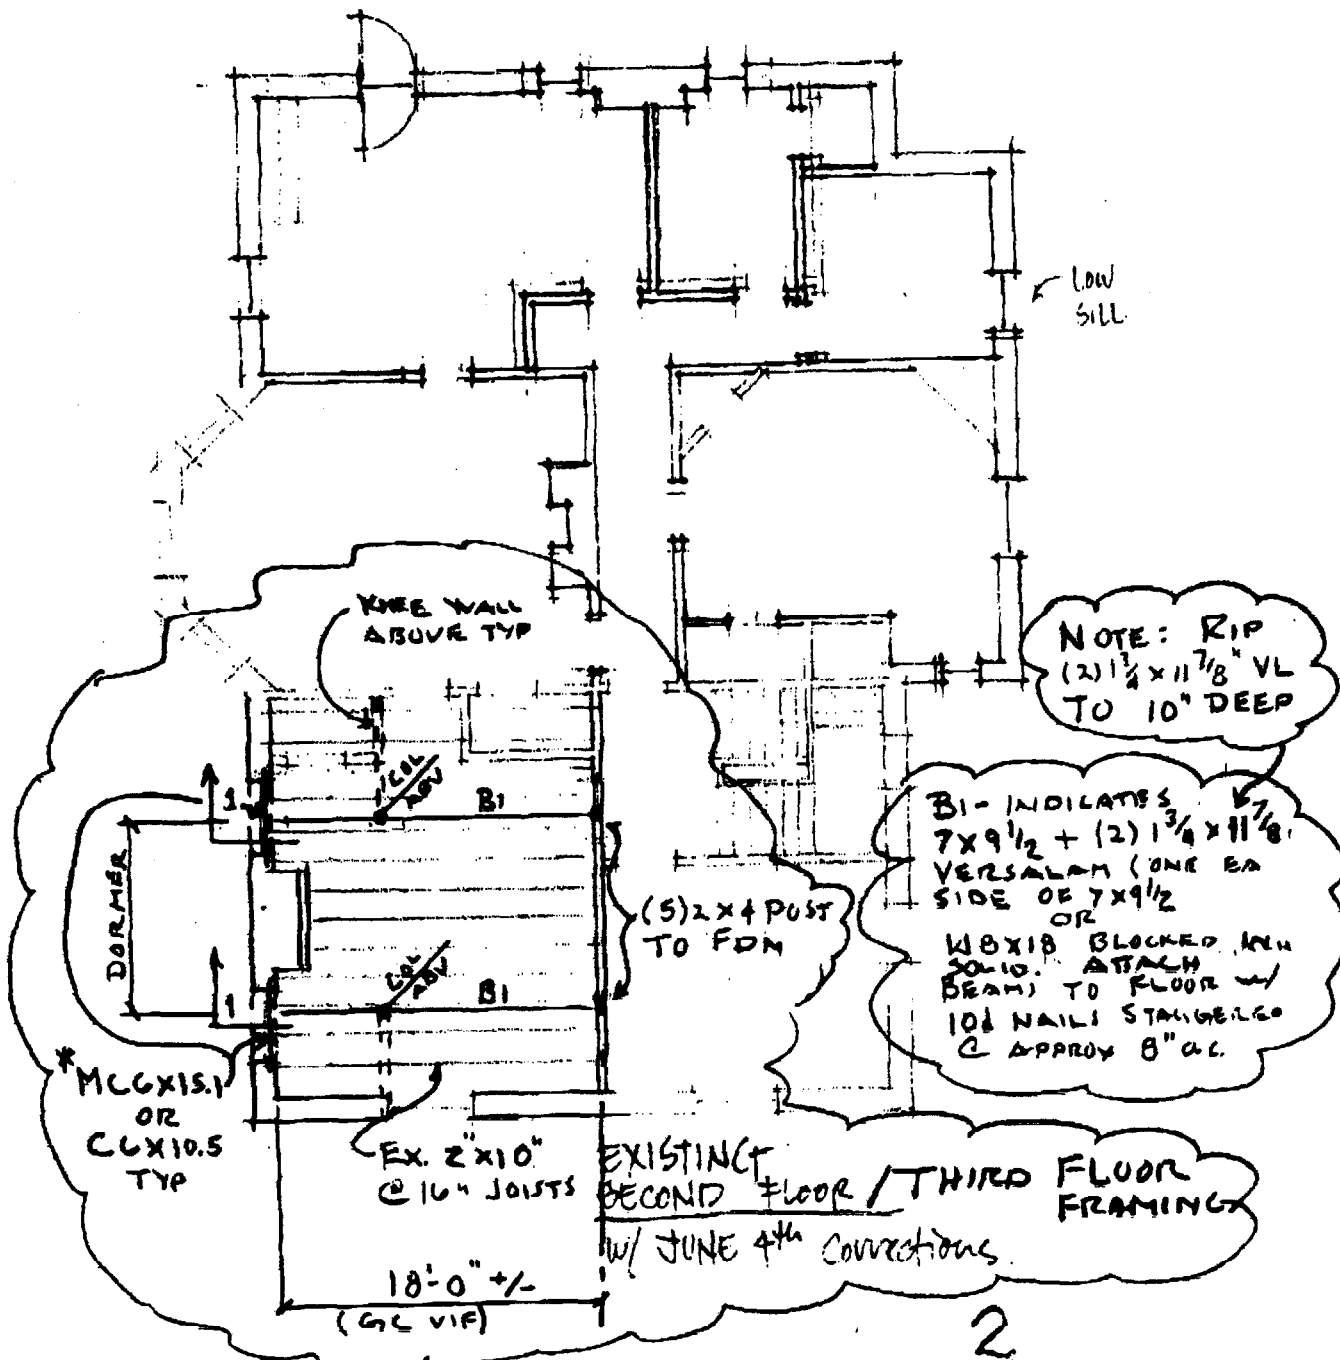 LOW
SILL
KNEE WALL
ABOVE TYP
NOTE: RIP
(2) 1 3/4 x 11 7/8" VL
TO 10" DEEP
COL
ABV
B1
1
DORMER
B1 - INDICATES
7x9 1/2 + (2) 1 3/4 x 11 7/8
VERSALAM (ONE EA
SIDE OF 7x9 1/2
OR
W8x18 BLOCKED
SOLID. ATTACH
BEAMS TO FLOOR w/
10d NAILS STAGGERED
@ APPROX 8" o.c.
(5) 2x4 POST
TO FDN
COL
ABV
B1
1
*MC6x15.1
OR
C6x10.5
TYP
EX. 2"x10"
@ 16" JOISTS
EXISTING
SECOND FLOOR / THIRD FLOOR
FRAMING
w/ JUNE 4th Corrections
18'-0" +/-
(GC VIF)
2